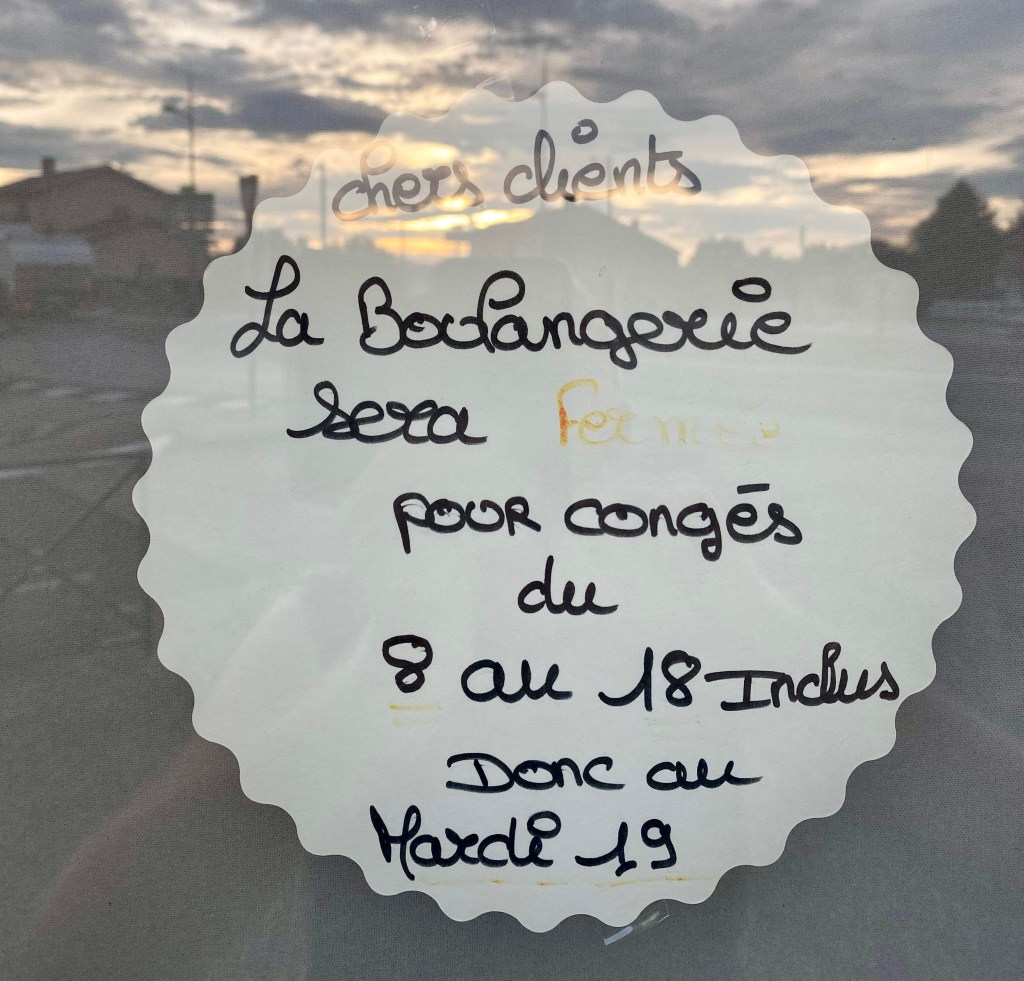 chers clients
La Boulangerie
sera Fermée
pour congés
du
8 au 18 Inclus
Donc au
Mardi 19